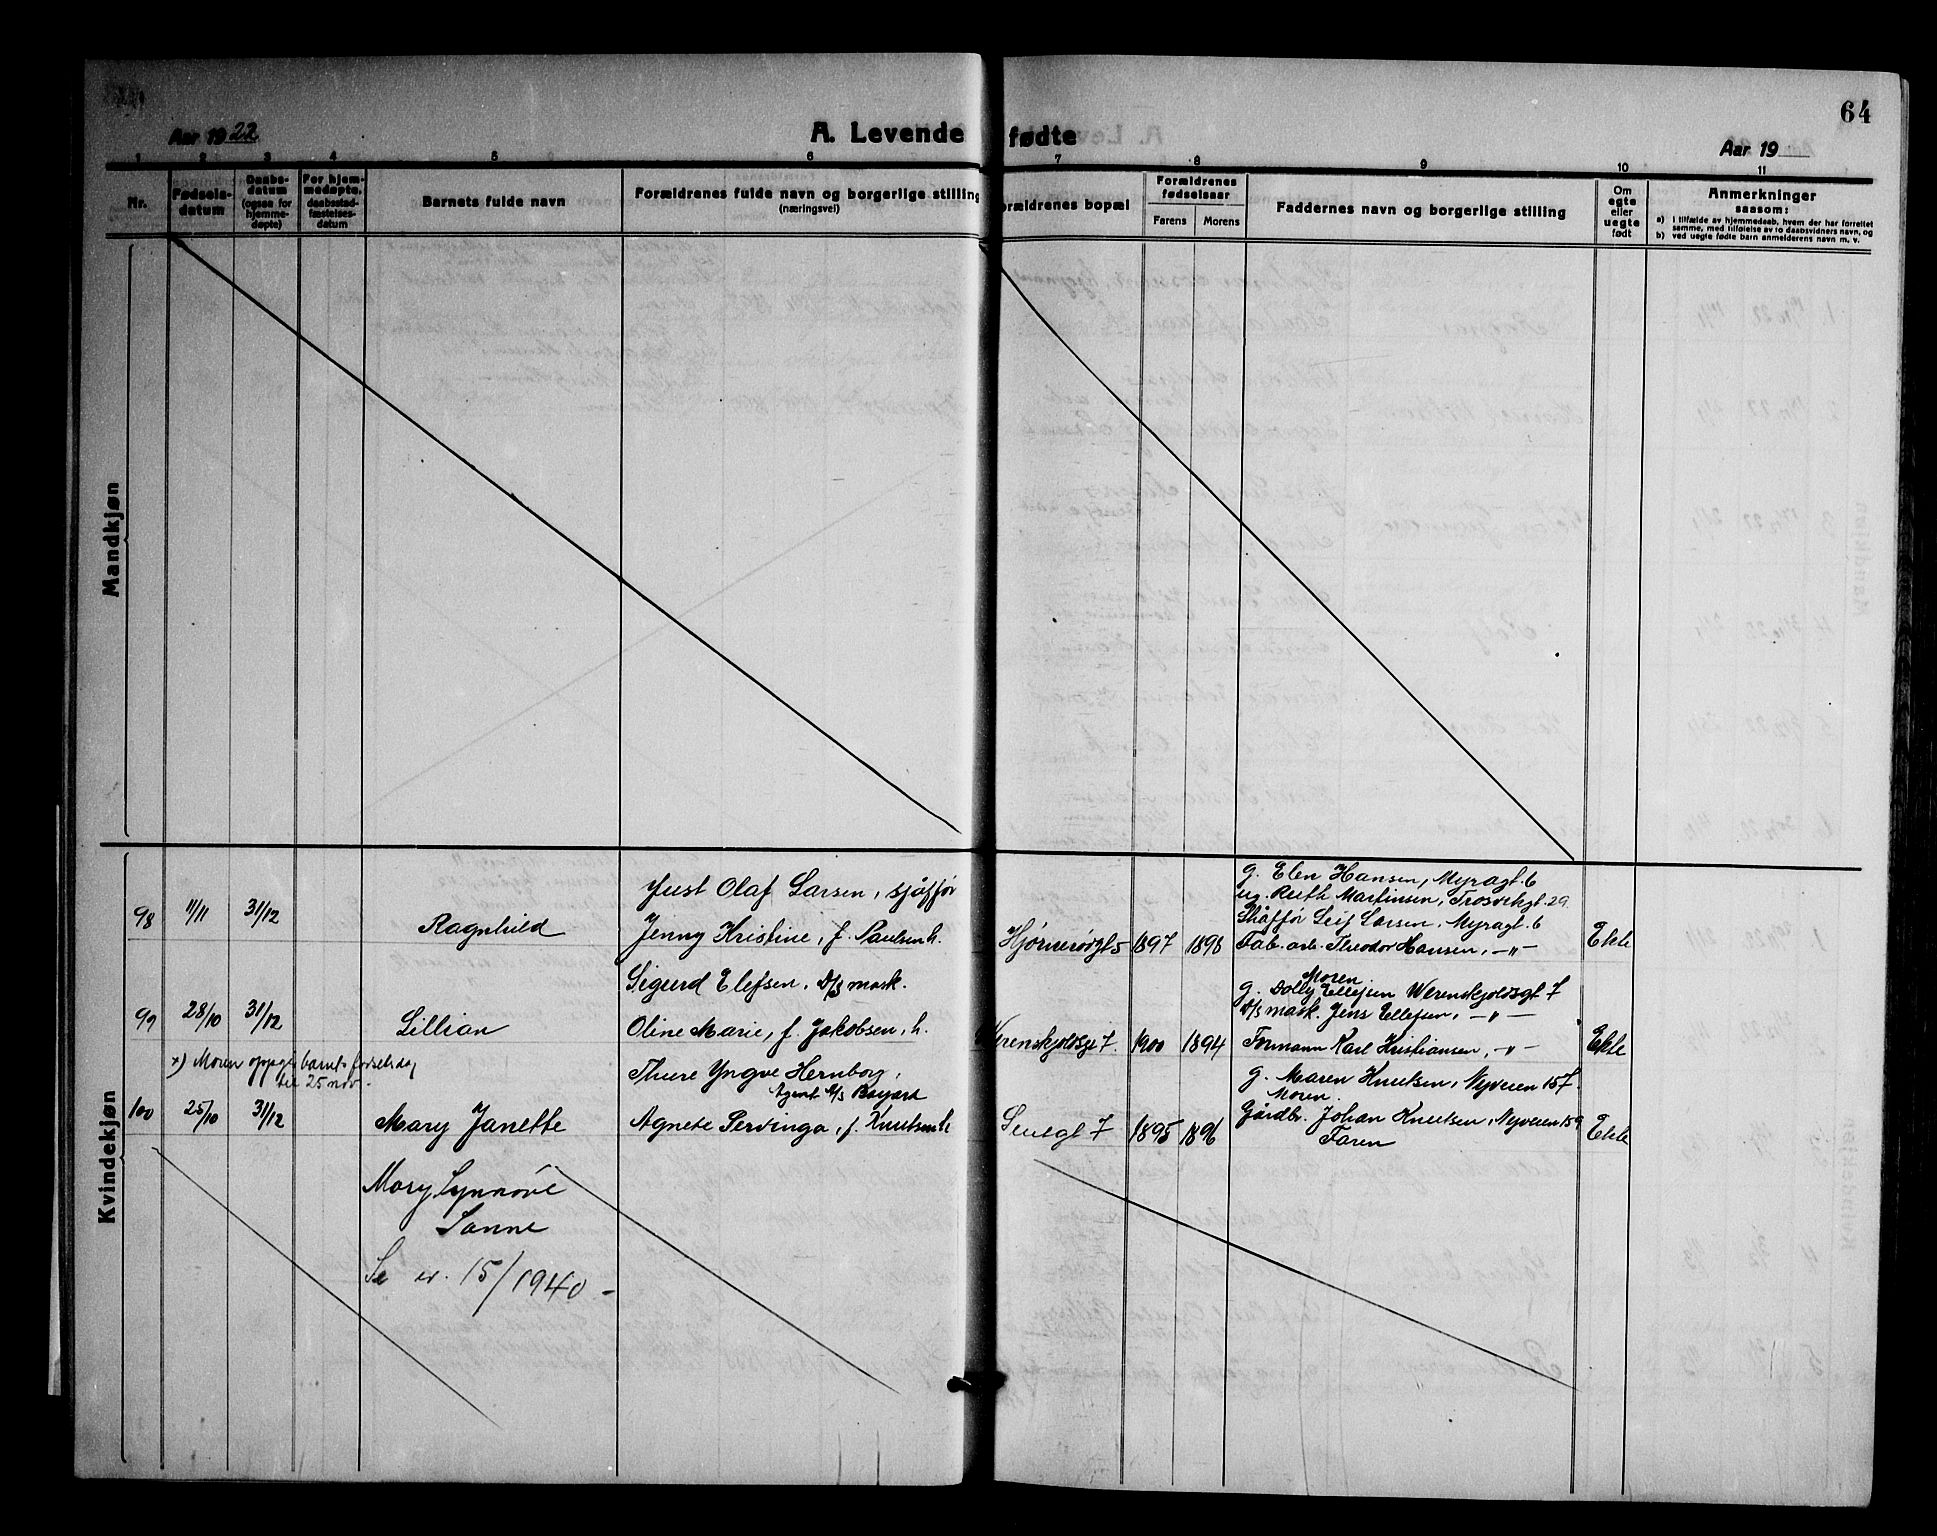 64
Aar 1922
A. Levende fødte
Aar 19
1 2 3 4 5 6 7 8 9 10 11
Nr.
Fødsels-
datum
Daabs-
datum
(ogsaa for
hjemme-
døpte)
For hjem-
medøpte,
daabsstad-
fæstelses-
datum
Barnets fulde navn
Forældrenes fulde navn og borgerlige stilling
(næringsvei)
orældrenes bopæl
Forældrenes
fødselsaar
Farens Morens
Faddernes navn og borgerlige stilling
Om
egte
eller
uegte
født
Anmerkninger
saasom:
a) I tilfælde av hjemmedaab, hvem der har forrettet
samme, med tilføielse av to daabsvidners navn, og
b) ved uegte fødte barn anmelderens navn m. v.
Mandkjøn
Kvindekjøn
98 11/11 31/12
Ragnhild
Just Olaf Larsen, sjåffør
Jenny Kristine, f. Paulsen h.
Hjørnerødgt 5 1897 1898
g. Elen Hansen, Myragt. 6
ug. Ruth Martinsen, Trosvikgt. 29
Shåffør Leif Larsen, Myragt. 6
Fab. arb. Theodor Hansen, -"-
Ekte
99 28/10 31/12
Lillian
Sigurd Elefsen, D/s mask.
Oline Marie, f. Jakobsen, h.
erenskjoldsgt 7. 1900 1894
Moren
g. Dolly Ellefsen Werenskjoldsgt 7
D/s mask. Jens Ellefsen, -"-
Formann Karl Kristiansen, -"-
Ekte
x) Moren oppgir barnets fødselsdag
til 25 nov.-
100 25/10 31/12
Mary Janette
Thure Yngve Hernborg,
Agent A/s Bayard
Agnete Servinga, f. Knutsen h.
1895 1896
g. Maren Knutsen, Nyveien 157
Moren.
Gårdbr. Johan Knutsen, Nyveien 159
Faren
Ekte
Mary Synnøve
Sanne
Se nr. 15/1940-